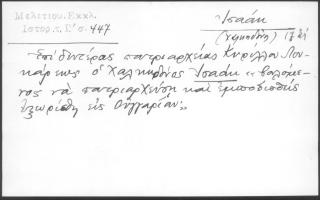 Μελετίου. Ἐκκλ.
Ἱστορ. τ. Γ'σ. 447
Ἰσαάκ
Ἐπὶ δευτέρας πατριαρχείας Κυρίλλου Λου-
κάρεως ὁ Χαλκηδόνος Ἰσαάκ «βουλόμε-
νος νὰ πατριαρχεύσῃ καὶ ἐμποδισθεὶς
ἐξωρίσθη εἰς Οὐγγαρίαν»